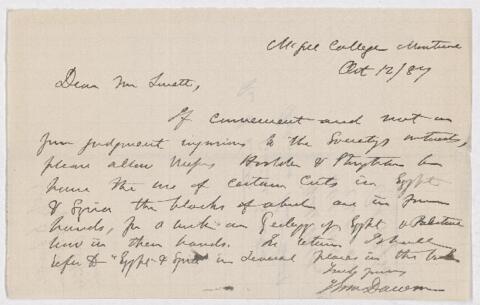 McGill College Montreal
Oct 12/87
Dear Mr
If convenient and not in
your judgment injurious to the Society's interests,
please allow Messrs Hodder & Stoughton to
have the use of certain cuts in Egypt
& Syria the blocks of which are in your
hands, for a work on Geology of Egypt & Palestine
now in their hands. In return I shall
refer to "Egypt & Syria" in several places in this book
Truly yours
J Wm Dawson